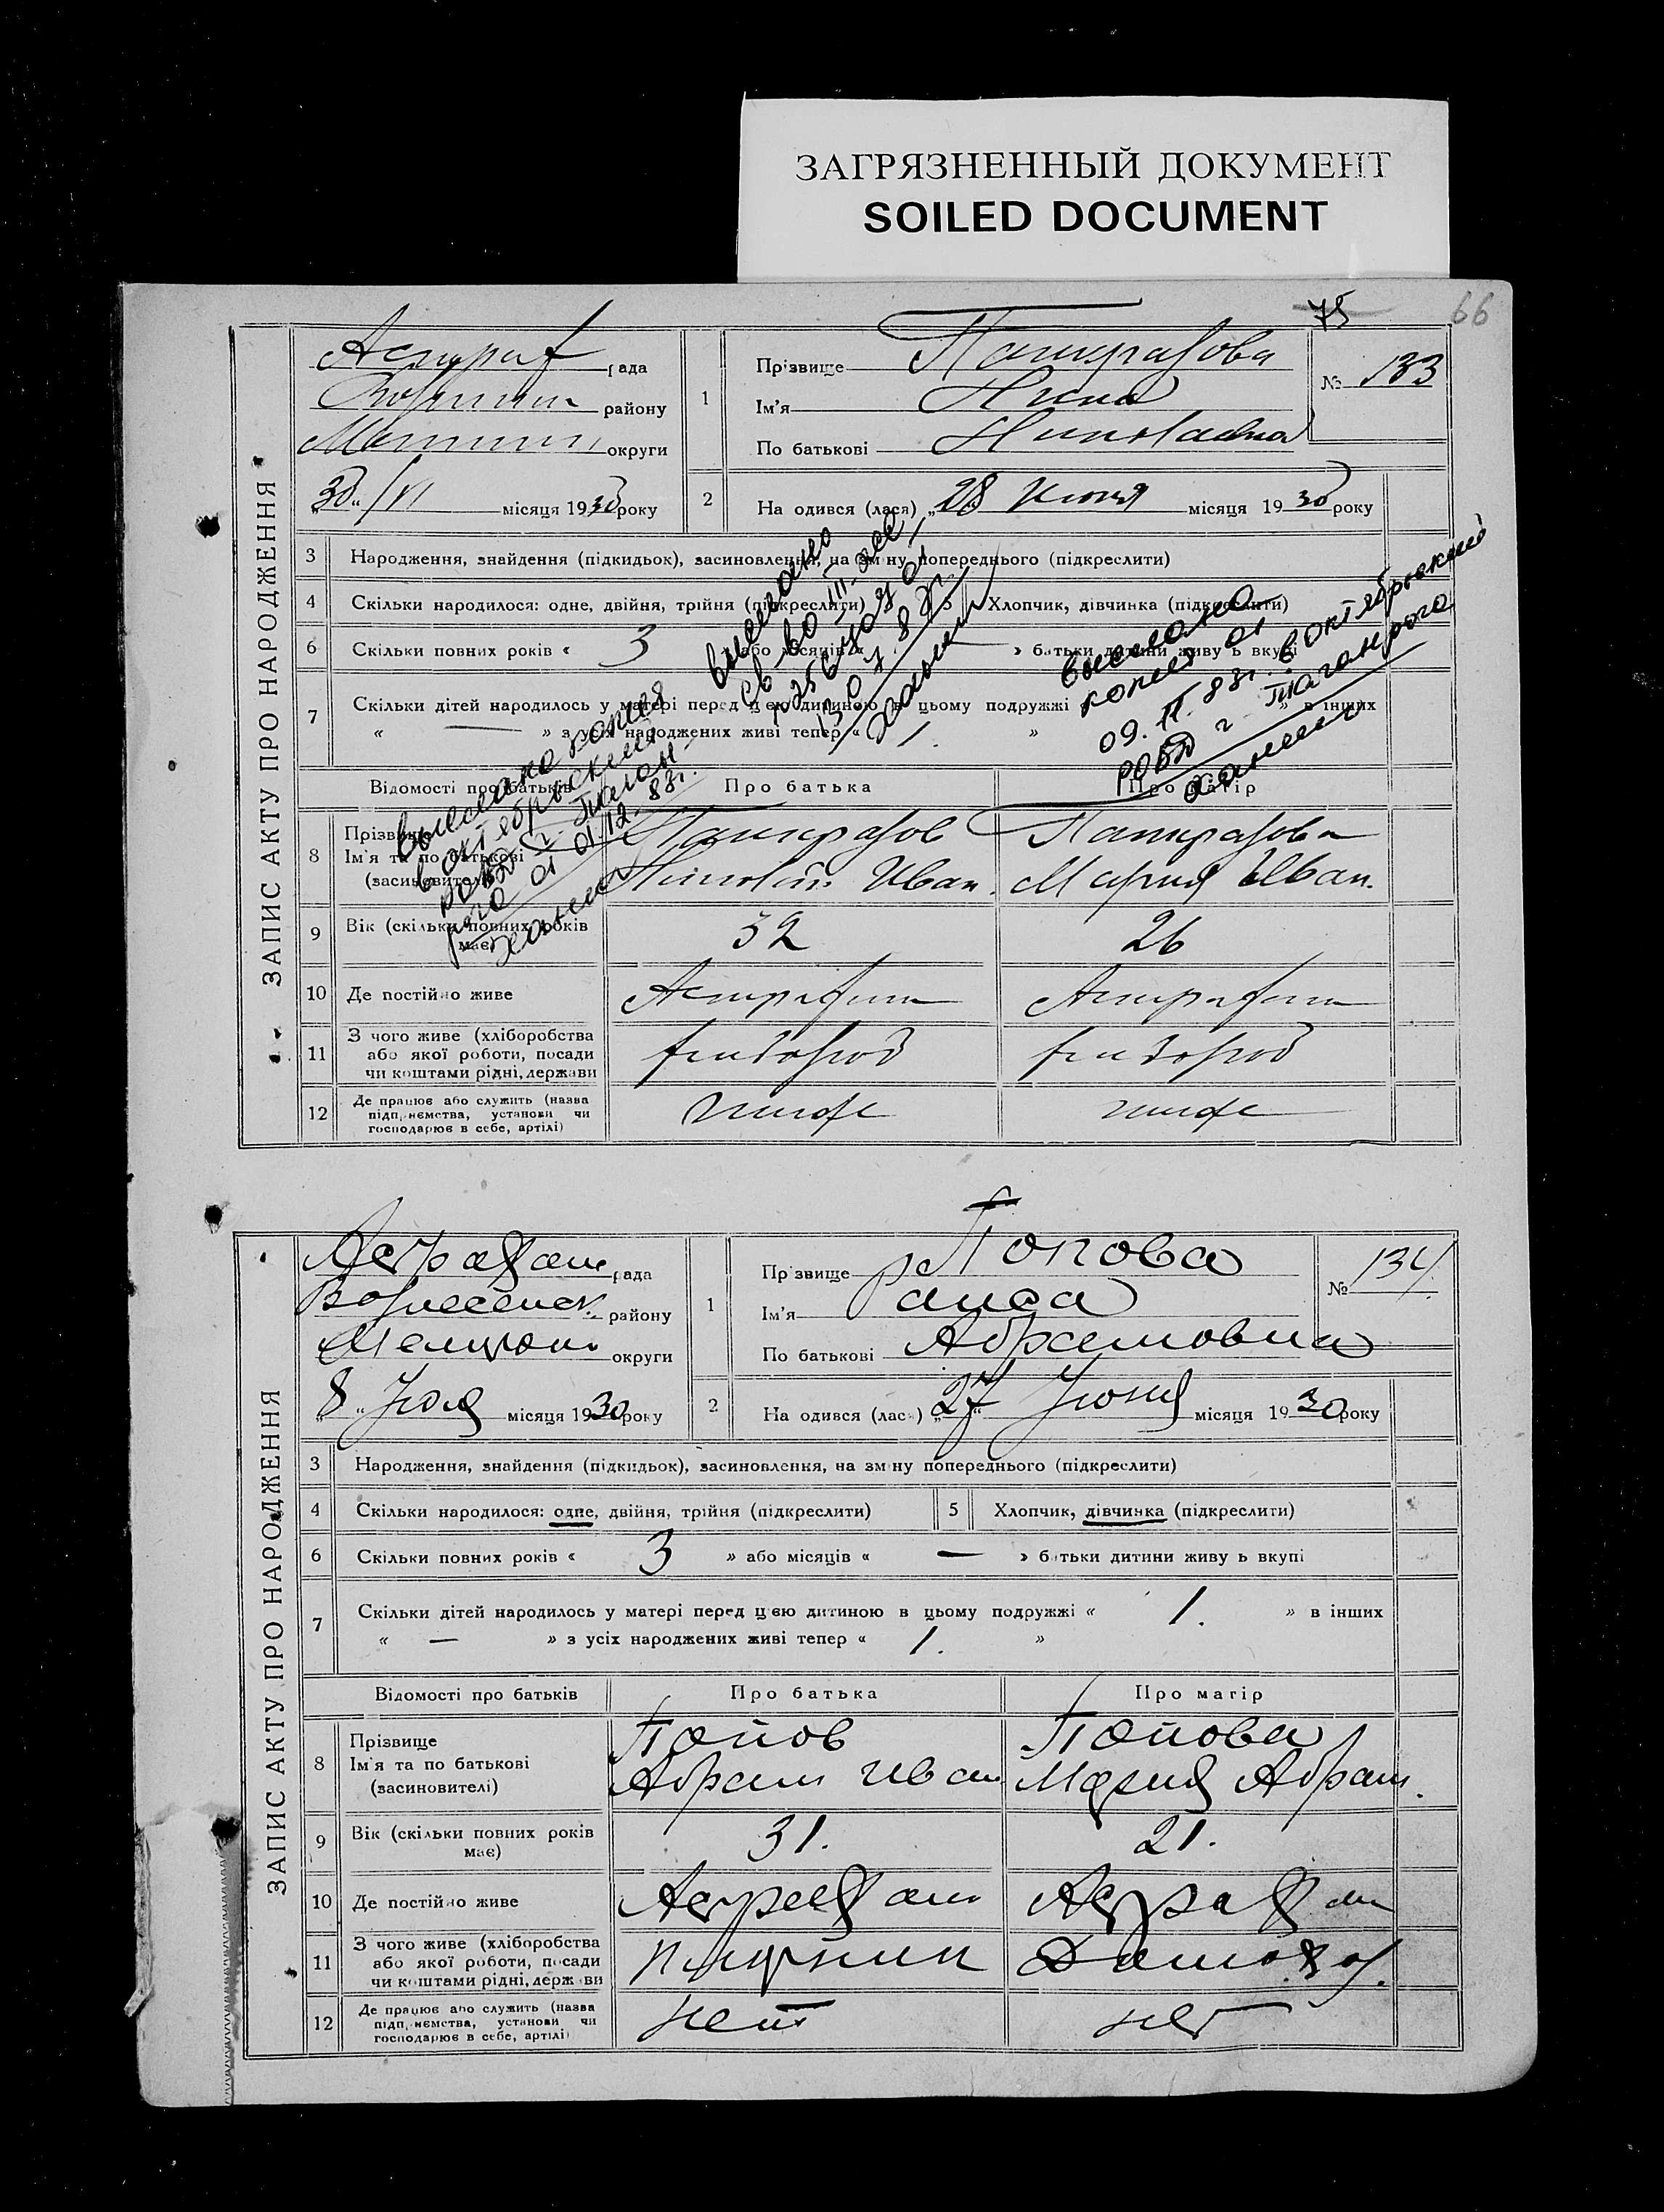 ЗАГРЯЗНЕННЫЙ ДОКУМЕНТ
SOILED DOCUMENT
75
66
ЗАПИС АКТУ ПРО НАРОДЖЕННЯ
рада
району
округи
30 /VI місяця 1930 року
1
Прізвище
Ім'я Нина
По батькові Николаевна
№ 133
2 На одився (лася) „28 Июня місяця 1930 року
3 Народження, знайдення (підкидьок), засиновлення, на зміну попереднього (підкреслити)
4 Скільки народилося: одне, двійня, трійня (підкреслити) 5 Хлопчик, дівчинка (підкреслити)
6 Скільки повних років « 3 » або місяців « » батьки дитини живуть вкупі
7 Скільки дітей народилось у матері перед цією дитиною в цьому подружжі » в інших
« — » з усіх народжених живі тепер « 1. »
выслано
св-во III-ЖС
выслана
копия 01
09. 83г. в октябрьский
РОВД г. Таганрога
выслана копия
в октябрьский
01 01.12.83г.
Відомості про батьків Про батька Про матір
8 Прізвище
Ім'я та по батькові
(засиновителі)
Иван. Мария Иван.
9 Вік (скільки повних років має) 32 26
10 Де постійно живе
11 З чого живе (хліборобства
або якої роботи, посади
чи коштами рідні, держави
12 Де працює або служить (назва
підприємства, установи чи
господарює в себе, артілі)
ЗАПИС АКТУ ПРО НАРОДЖЕННЯ
Астрахан рада
Вознесенск. району
Мелитоп. округи
„8„ Июля місяця 1930 року
1
Прізвище Попова
Ім'я Раиса
По батькові Абрамовна
№ 134.
2 На одився (лася) „27„ Июня місяця 1930 року
3 Народження, знайдення (підкидьок), засиновлення, на зміну попереднього (підкреслити)
4 Скільки народилося: одне, двійня, трійня (підкреслити) 5 Хлопчик, дівчинка (підкреслити)
6 Скільки повних років « 3 » або місяців « — » батьки дитини живуть вкупі
7 Скільки дітей народилось у матері перед цією дитиною в цьому подружжі « 1. » в інших
« — » з усіх народжених живі тепер « 1. »
Відомості про батьків Про батька Про матір
8 Прізвище Попов Попова
Ім'я та по батькові Абрам Иван Мария Абрам.
(засиновителі)
9 Вік (скільки повних років має) 31. 21.
10 Де постійно живе Астрахан Астрахан
11 З чого живе (хліборобства
або якої роботи, посади
чи коштами рідні, держави
12 Де працює або служить (назва
підприємства, установи чи
господарює в себе, артілі)
нет нет